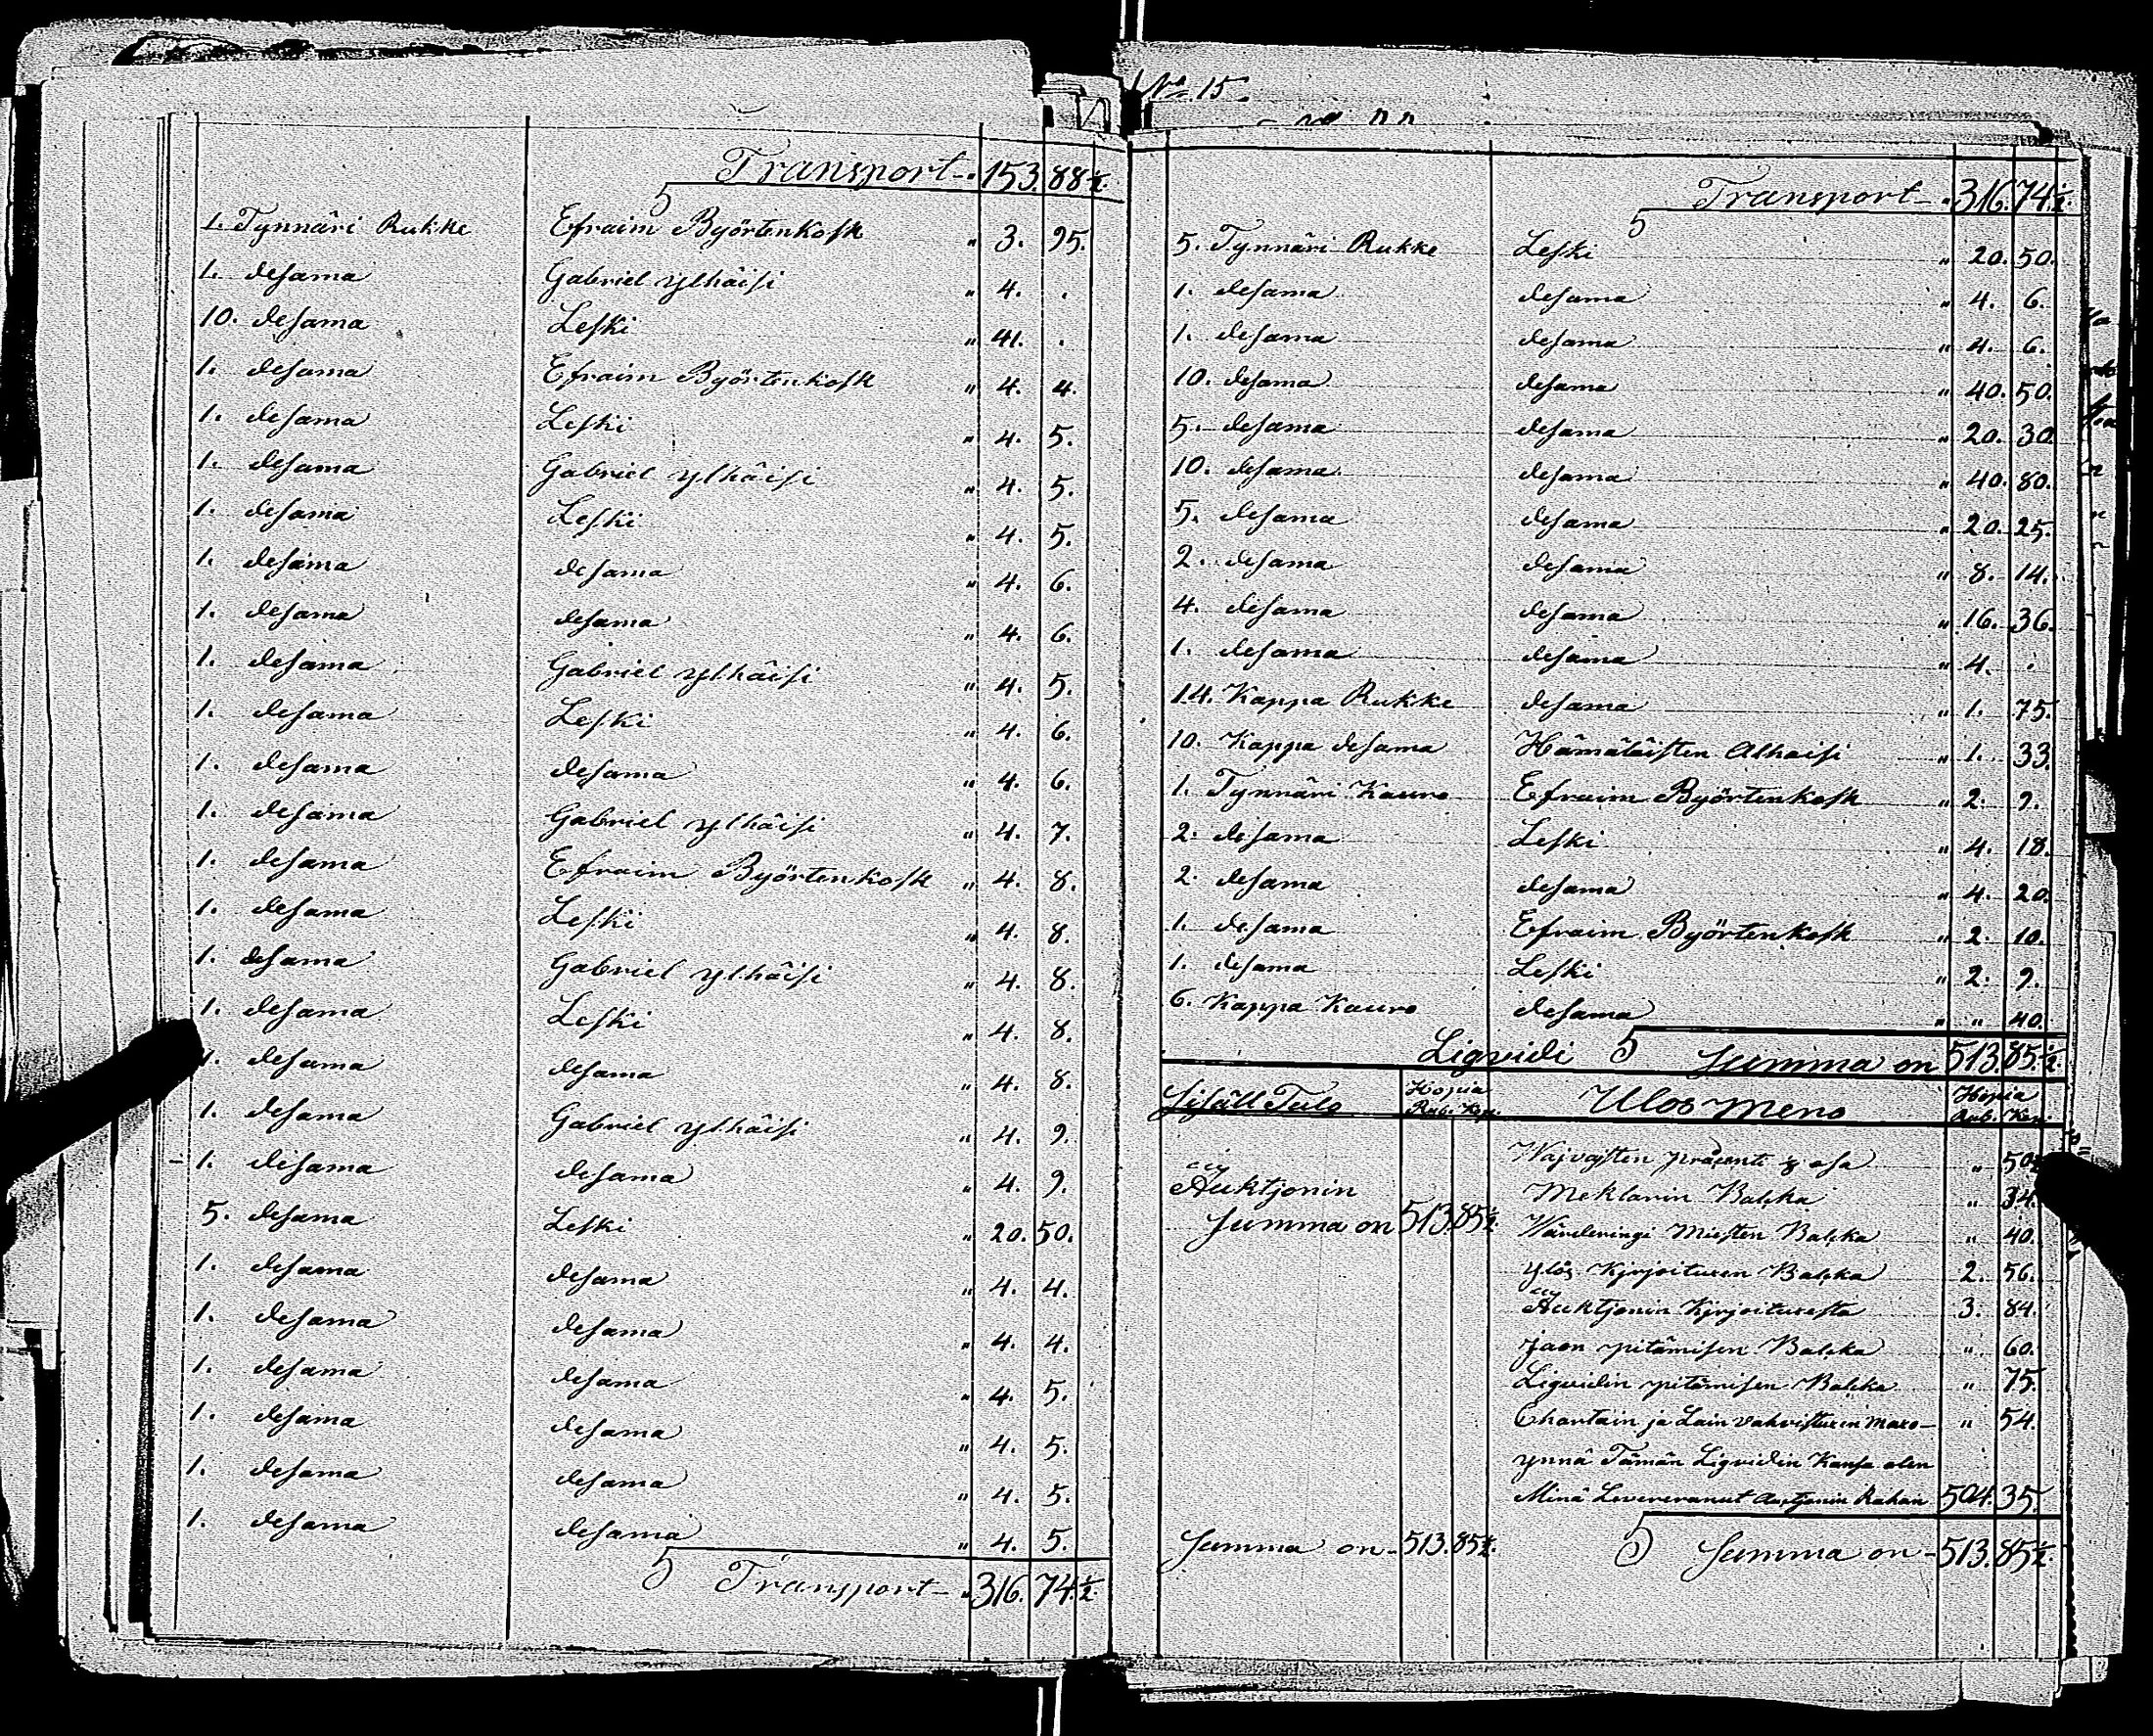 Transport - " 153. 88 1/2.
1. Tynnäri Rukke Efraim Byörtenkosk " 3. 95.
1. desama Gabriel ylhäisi " 4. .
10. desama Leski " 41. .
1. desama Efraim Byörtenkosk " 4. 4.
1. desama Leski " 4. 5.
1. desama Gabriel ylhäisi " 4. 5.
1. desama Leski " 4. 5.
1. desama desama " 4. 6.
1. desama desama " 4. 6.
1. desama Gabriel ylhäisi " 4. 5.
1. desama Leski " 4. 6.
1. desama desama " 4. 6.
1. desama Gabriel ylhäisi " 4. 7.
1. desama Efraim Byörtenkosk " 4. 8.
1. desama Leski " 4. 8.
1. desama Gabriel ylhäisi " 4. 8.
1. desama Leski " 4. 8.
1. desama desama " 4. 8.
1. desama Gabriel ylhäisi " 4. 9.
1. desama desama " 4. 9.
5. desama Leski " 20. 50.
1. desama desama " 4. 4.
1. desama desama " 4. 4.
1. desama desama " 4. 5.
1. desama desama " 4. 5.
1. desama desama " 4. 5.
1. desama desama " 4. 5.
Transport - " 316. 74 1/2.
No 15.
Transport - " 316. 74 1/2
5. Tynnäri Rukke Leski " 20. 50.
1. desama desama " 4. 6.
1. desama desama " 4. 6.
10. desama desama " 40. 50.
5. desama desama " 20. 30
10. desama desama " 40. 80.
5. desama desama " 20. 25.
2. desama desama " 8. 14.
4. desama desama " 16. 36.
1. desama desama " 4. .
14. Kappa Rukke desama " 1. 75.
10. Kappa desama Hämäläisten Alhaisi " 1. 33.
1. Tynnäri Kauro Efraim Byörtenkosk " 2. 9.
2. desama Leski " 4. 18.
2. desama desama " 4. 20.
1. desama Efraim Byörtenkosk " 2. 10.
1. desama Leski " 2. 9.
6. Kappa Kauro desama " " 40.
Ligvidi Summa on 513. 85 1/2.
Sisäll Tulo Hopia Rub. Kop. Ulos meno Hopia Rub. Kop.
Wajvasten präsenti osa " 50
Auktjonin Meklarin Balkka " 34.
Summa on 513. 85 1/2. Wärderingi Miesten Balkka " 40.
ylös Kirjoituxen Balkka 2. 56.
Auktjonin Kirjoituxesta 3. 84.
jaon pitämisen Balkka " 60.
Ligvidin pitämisen Balkka " 75.
Chartain ja Lain vahvistuxen maxo - " 54.
ynnä Tämän Ligvidin Kansa olen
Minä Levereranut Auctjonin Rahan 504. 35.
Summa on - 513. 85 1/2. Summa on - 513. 85 1/2.